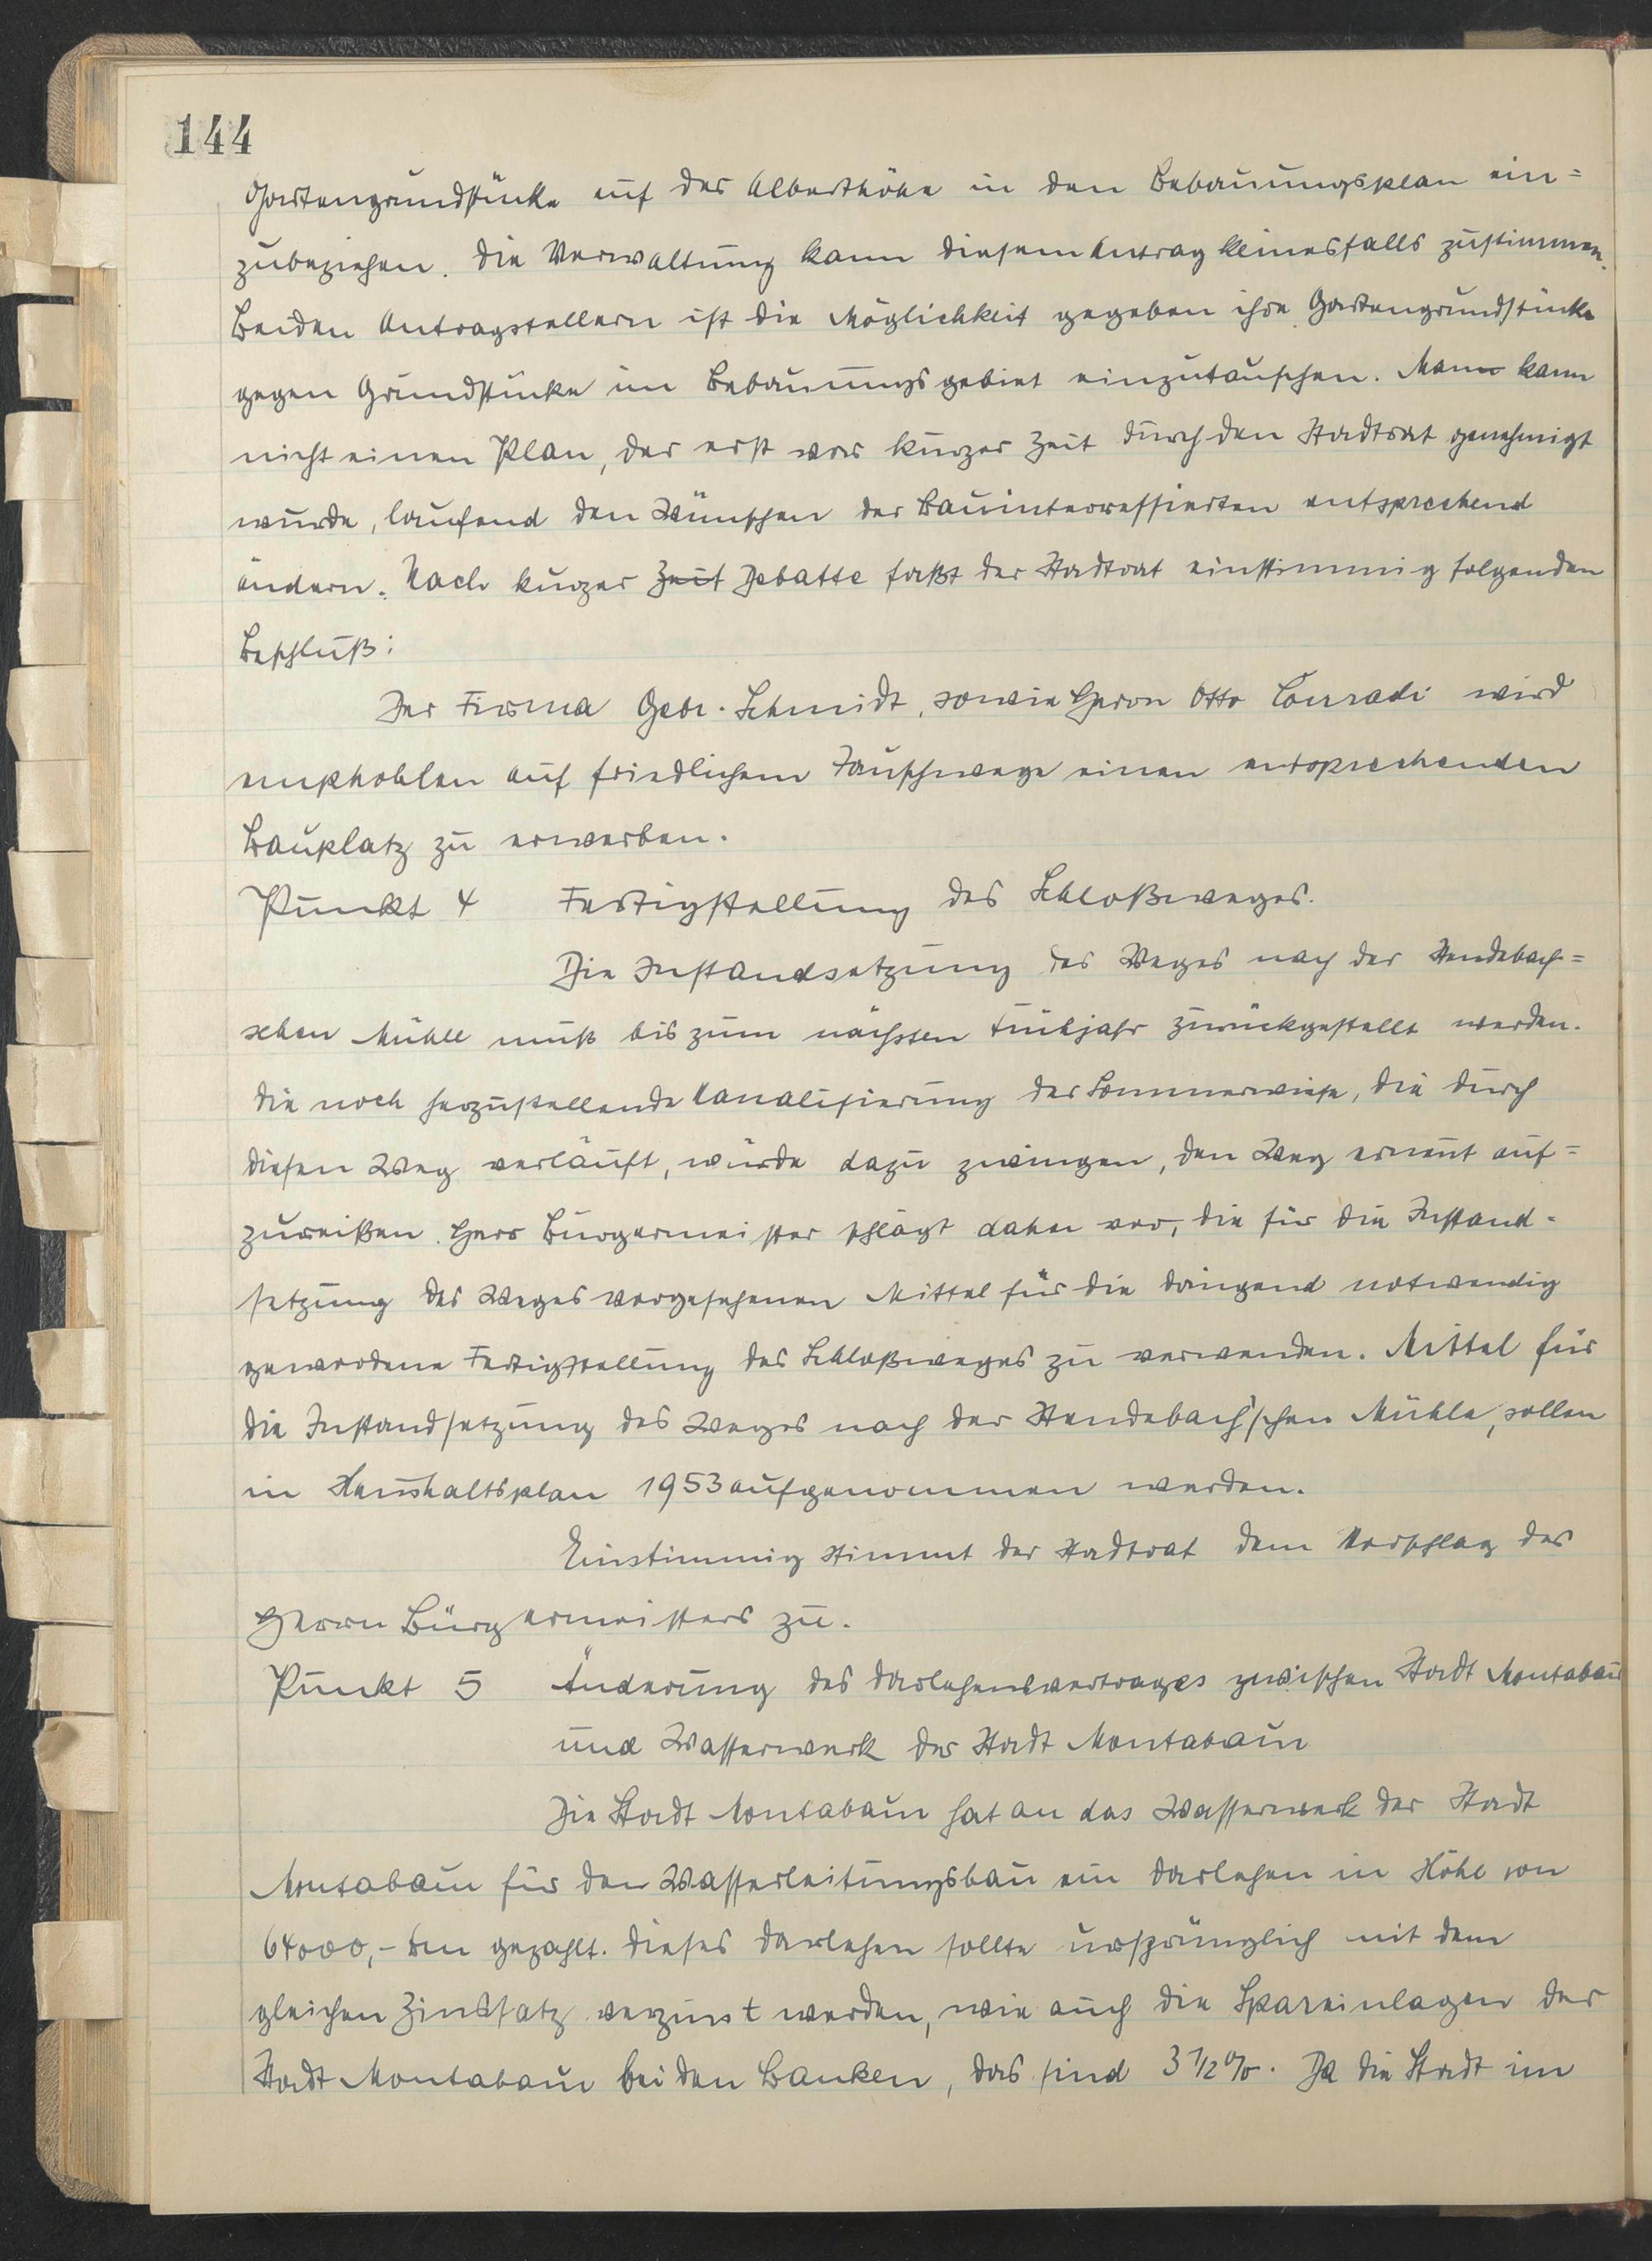 144
Gartengrundstücke auf der Alberthöhe in den Bebauungsplan ein=
zubeziehen. Die Verwaltung kann diesem Antrag keinesfalls zustimmen.
Beiden Antragstellern ist die Möglichkeit gegeben ihre Gartengrundstücke
gegen Grundstücke im Bebauungsgebiet einzutauschen. Mann kann
nicht einen Plan, der erst vor kurzer Zeit durch den Stadtrat genehmigt
wurde, laufend den Wünschen der Bauinterressierten entsprechend
ändern. Nach kurzer Zeit Debatte faßt der Stadtrat einstimmig folgenden
Beschluß:
Der Firma Gebr. Schmidt, sowie Herrn Otto Conradi wird
emphohlen auf friedlichem Tauschwege einen entsprechenden
Bauplatz zu erwerben.
Punkt 4 Fertigstellung des Schloßweges.
Die Instandsetzung des Weges nach der Hendebach=
schen Mühle muß bis zum nächsten Frühjahr zurückgestellt werden.
Die noch herzustellende Kanalisierung der Sommerwiese, die durch
diesen Weg verläuft, würde dazu zwingen, den Weg erneut auf=
zureißen. Herr Bürgermeister schlägt daher vor, die für die Instand-
setzung des Weges vorgesehenen Mittel für die dringend notwendig
gewordene Fertigstellung des Schloßweges zu verwenden. Mittel für
die Instandsetzung des Weges nach der Hendebach'schen Mühle, sollen
in Haushaltsplan 1953 aufgenommen werden.
Einstimmig stimmt der Stadtrat dem Vorschlag des
Herrn Bürgermeisters zu.
Punkt 5 Änderung des Darlehensvertrages zwischen Stadt Montabaur
und Wasserwerk der Stadt Montabaur
Die Stadt Montabaur hat an das Wasserwerk der Stadt
Montabaur für den Wasserleitungsbau ein Darlehen in Höhe von
64000,- Dm gezahlt. Dieses Darlehen sollte ursprünglich mit dem
gleichen Zinssatz verzinst werden, wie auch die Spareinlagen der
Stadt Montabaur bei den Banken, das sind 3 1/2 %. Da die Stadt im